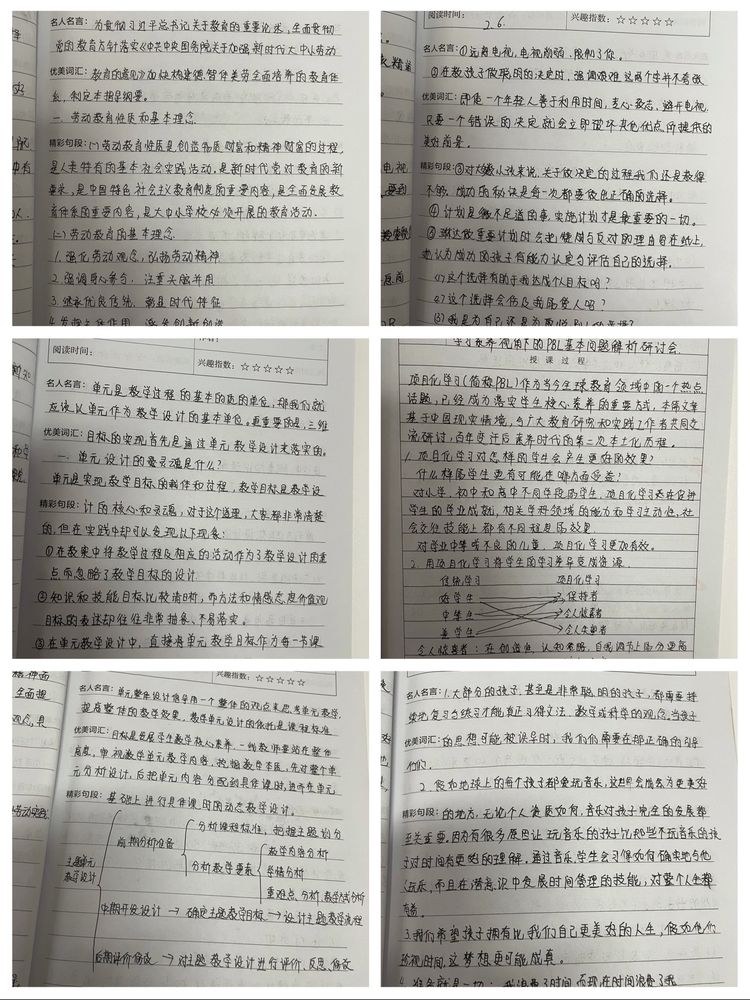 名人名言：为贯彻习近平总书记关于教育的重要论述，全面贯彻
党的教育方针落实《中共中央国务院关于加强新时代大中小劳动
优美词汇：教育的意见》加快构建德智体美劳全面培养的教育体
系，制定本指导纲要。
一、劳动教育性质和基本理念
精彩句段：(一)劳动教育性质是创造物质财富和精神财富的过程，
是人类特有的基本社会实践活动。是新时代党对教育的新
要求，是中国特色社会主义教育制度的重要内容，是全面发展教
育体系的重要内容，是大中小学校必须开展的教育活动。
(二)劳动教育的基本理念
1.强化劳动观念，弘扬劳动精神
2.强调身心参与，注重手脑并用
3.继承优良传统，彰显时代特征
4.发挥主体作用，激发创新创造
阅读时间：2.6.
兴趣指数：☆☆☆☆☆
名人名言：①远离电视，电视削弱、限制了你。
②在教孩子做聪明的决定时，强调艰难这两个字并不有效
优美词汇：即使一个年轻人善于利用时间，专心致志，避开电视，
只要一个错误的决定就会立即破坏其他优点所提供的
美好前景。
精彩句段：③对大多数小孩来说，关于做决定的过程我们还是教得
不够，成功的秘诀是每一次都要做出正确的选择。
④计划是微不足道的事，实施计划才是最重要的一切。
⑤琳达做重要计划时会把赞成与反对的理由写在纸上，
她认为成功的孩子有能力认定与评估自己的选择。
(1)这个选择有助于我达成个人目标吗？
(2)这个选择会伤及我所爱人吗？
阅读时间：
兴趣指数：☆☆☆☆☆
名人名言：单元是教学过程的基本的质的单位，那我们就
应该以单元作为教学设计的基本单位。更重要的是，三维
优美词汇：目标的实现首先是通过单元教学设计来落实的。
一、单元设计的灵魂是什么？
单元是实现教学目标的载体和过程，教学目标是教学设
精彩句段：计的核心和灵魂，对于这个道理，大家都非常清楚
的，但在实践中却可以发现以下现象：
①在教案中将教学过程及相应的活动作为了教学设计的重
点而忽略了教学目标的设计
②知识和技能目标比较清晰，而方法和情感态度价值观
目标的表达却往往非常抽象、不易落实。
③在单元教学设计中，直接将单元教学目标作为每一节课
学习素养视角下的PBL基本问题解析研讨会
授课过程
项目化学习(简称PBL)作为当今全球教育领域中的一个热点
话题，已经成为落实学生核心素养的重要方式，本次文章
基于中国现实情境，与广大教育研究和实践工作者共同交
流研讨，百年变迁后素养时代的第二次本土化历程。
1.项目化学习对怎样的学生会产生更好的效果？
什么样的学生更有可能在哪方面受益？
对小学、初中和高中不同学段的学生，项目化学习都在促进
学生的学业成就，相关学科领域的能力和学习主动性，社
会交往技能上都有不同程度的效果。
对学业中等或不良的儿童，项目化学习更加有效。
2.用项目化学习将学生的学习差异变成资源
传统学习
项目化学习
好学生
保持者
中等生
令人惊喜者
差学生
令人失望者
令人惊喜者：在创造性、认知策略、自我调节上高分更高
兴趣指数：☆☆☆☆☆
名人名言：单元整体设计倡导用一个整体的观点来思考单元教学，
提高整体的教学效果，教学单元设计的依托是课程标准
优美词汇：目标是发展学生数学核心素养，一线教师要站在整体
高度，审视教学单元教学内容，把握教学本质，先对整个单
元分析设计，后把单元内容分配到具体课时，进而在单元
精彩句段：基础上进行具体课时的动态教学设计。
主题单元教学设计
前期分析准备
分析课程标准，把握主题划分
分析教学要素
教学内容分析
学情分析
重难点分析、教学方式分析
中期开发设计→确定主题教学目标→设计主题教学流程
后期评价修改→对主题教学设计进行评价、反思、修改
名人名言：1.大部分的孩子，甚至是非常聪明的孩子，都需要持
续地复习与练习才能真正习得文法、数学或科学的观念。当孩子
优美词汇：的思想可能被误导时，我们仍需要在那正确的引导
他们。
2.假如地球上的每个孩子都爱玩音乐，这世界会成为更美好
精彩句段：的地方，无论个人资质如何，音乐对孩子完全的发展都
至关重要。因为有很多原因让玩音乐的孩子比那些不玩音乐的孩
子对时间有更好的理解，通过音乐，学生会习得如何确实地与他
人玩乐，而且在潜意识中发展时间管理的技能，对整个人生都
有益。
3.我们希望孩子拥有比我们自己更美好的人生，假如他们
珍视时间，这梦想更可能成真。